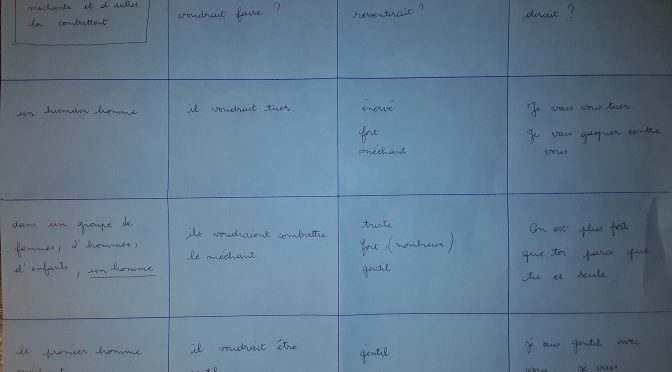 méchante et d'autres
la combattent
voudrait faire ?
ressentirait ?
dirait ?
un humain homme
il voudrait tuer
énervé
fort
méchant
Je vais vous tuer
Je vais gagner contre
vous
dans un groupe de
femmes, d'hommes,
d'enfants, un homme
ils voudraient combattre
le méchant
triste
fort (nombreux)
gentil
On est plus fort
que toi parce que
tu es seule
le premier homme
méchant
il voudrait être
gentil
gentil
je suis gentil avec
vous je vais